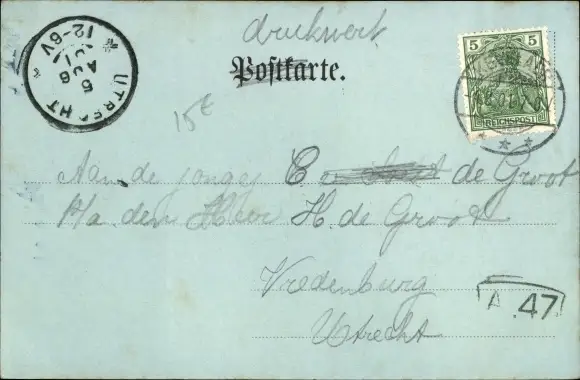 drukwerk
Postkarte.
UTRECHT
5 AUG
12-6V
5 5
REICHSPOST
15 €
Aan de jonge C de Groot
p/a den Heer H. de Groot
Vredenburg
Utrecht
A. 47